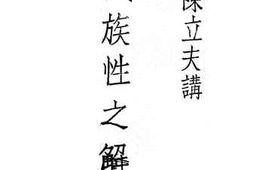 陳立夫講
族性之解